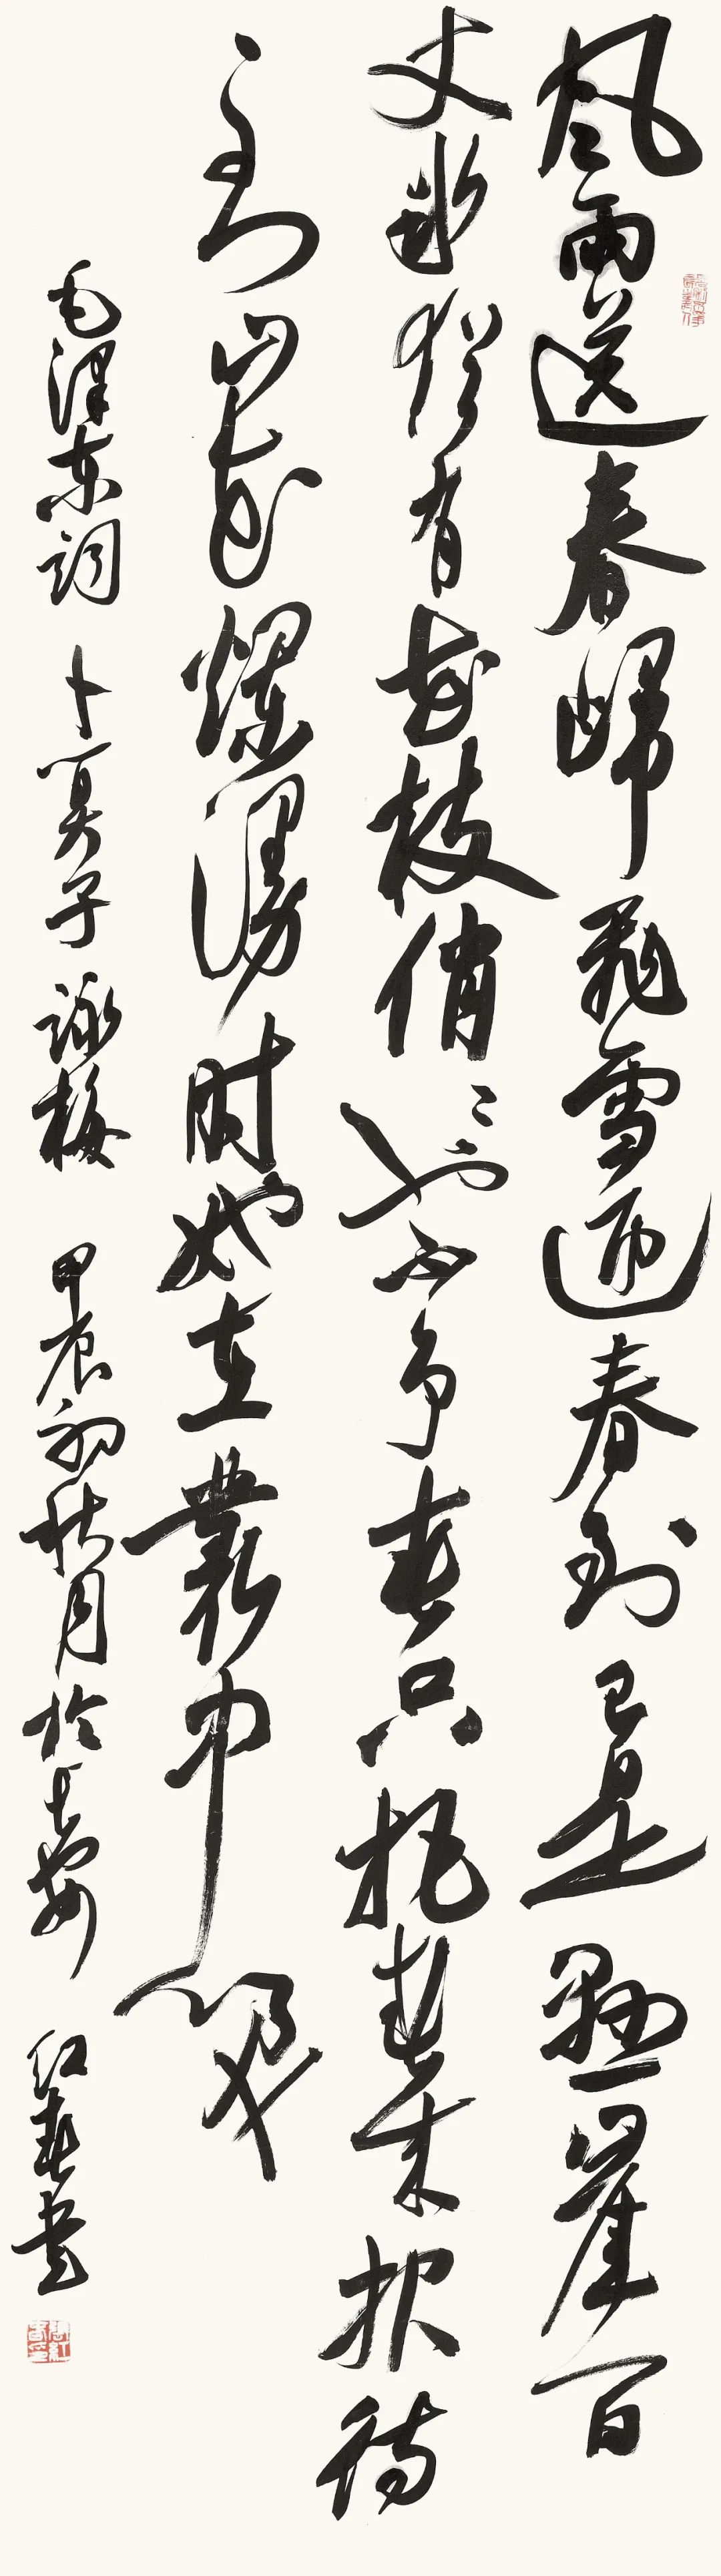 风雨送春歸飛雪迎春到已是懸崖百
丈冰猶有花枝俏〻也不争春只把春来报待
到山花爛漫时她在叢中笑
毛澤东詞 卜算子 詠梅 甲辰初秋月於长安 红春书